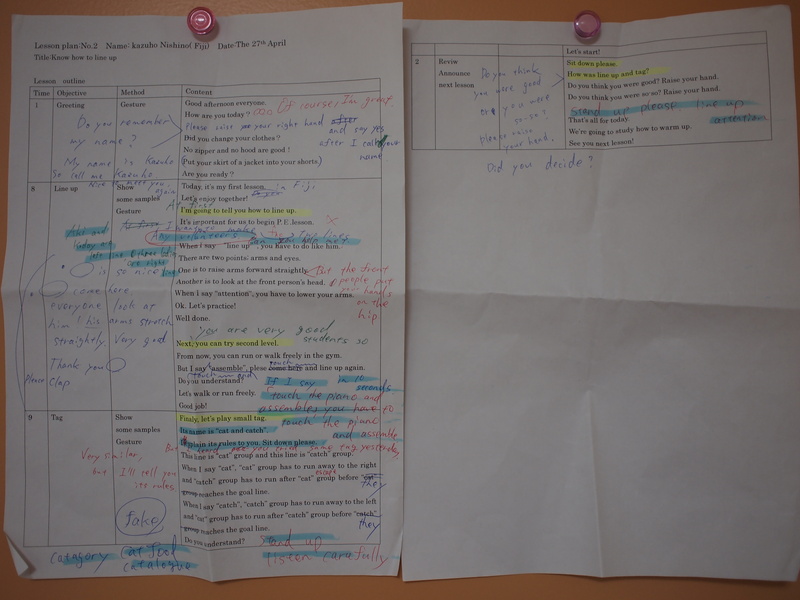 Lesson plan-No.2 Name: kazuho Nishino( Fiji) Date-The 27th April
Title:Know how to line up
Lesson outline
Time Objective Method Content
1 Greeting Gesture Good afternoon everyone.
How are you today? Of course I'm great.
Do you remember my name?
My name is Kazuho
So call me Kazuho
Nice to meet you, again
Please raise your right hand and say yes after I call your name
Did you change your clothes?
No zipper and no hood are good!
(Put your skirt of a jacket into your shorts.)
Are you ready?
8 Line up Show some samples Gesture
Today, it's my first lesson in Fiji
Let's enjoy together!
At first
I'm going to tell you how to line up.
It's important for us to begin P.E lesson.
Any volunteers
When I say "line up", you have to do like him.
There are two points: arms and eyes.
One is to raise arms forward straightly.
But the front people put your hands on the hip
Another is to look at the front person's head.
When I say "attention", you have to lower your arms.
Ok. Let's practice!
Well done.
is so nice
come here
everyone look at
him! his arms stretch
straightly. Very good
Thank you
Please clap
you are very good students so
Next, you can try second level.
From now, you can run or walk freely in the gym.
But I say "assemble", please come here and line up again.
touch and
Do you understand?
Let's walk or run freely.
Good job!
If I say in 10 seconds
touch the piano and
assemble, you have to
touch the piano
and assemble
9 Tag Show some samples Gesture
Finaly, let's play small tag.
Its name is "cat and catch".
Explain its rules to you. Sit down please.
Very similar,
but I'll tell you
its rules
This line is "cat" group and this line is "catch" group.
When I say "cat", "cat" group has to run away to the right
and "catch" group has to run after "cat" group before "cat" they
group reaches the goal line.
escape
When I say "catch", "catch" group has to run away to the left
and "cat" group has to run after "catch" group before "catch" they
group reaches the goal line.
Do you understand?
fake
Stand up
listen carefully
Category Cat food
catalogue
Let's start!
2 Reviw
Announce
next lesson
Sit down please.
How was line up and tag?
Do you think you were good? Raise your hand.
Do you think you were so so? Raise your hand.
Stand up please line up
attention
That's all for today.
We're going to study how to warm up.
See you next lesson!
Do you think
you were good
or you were
so-so?
please raise
your hand.
Did you decide?